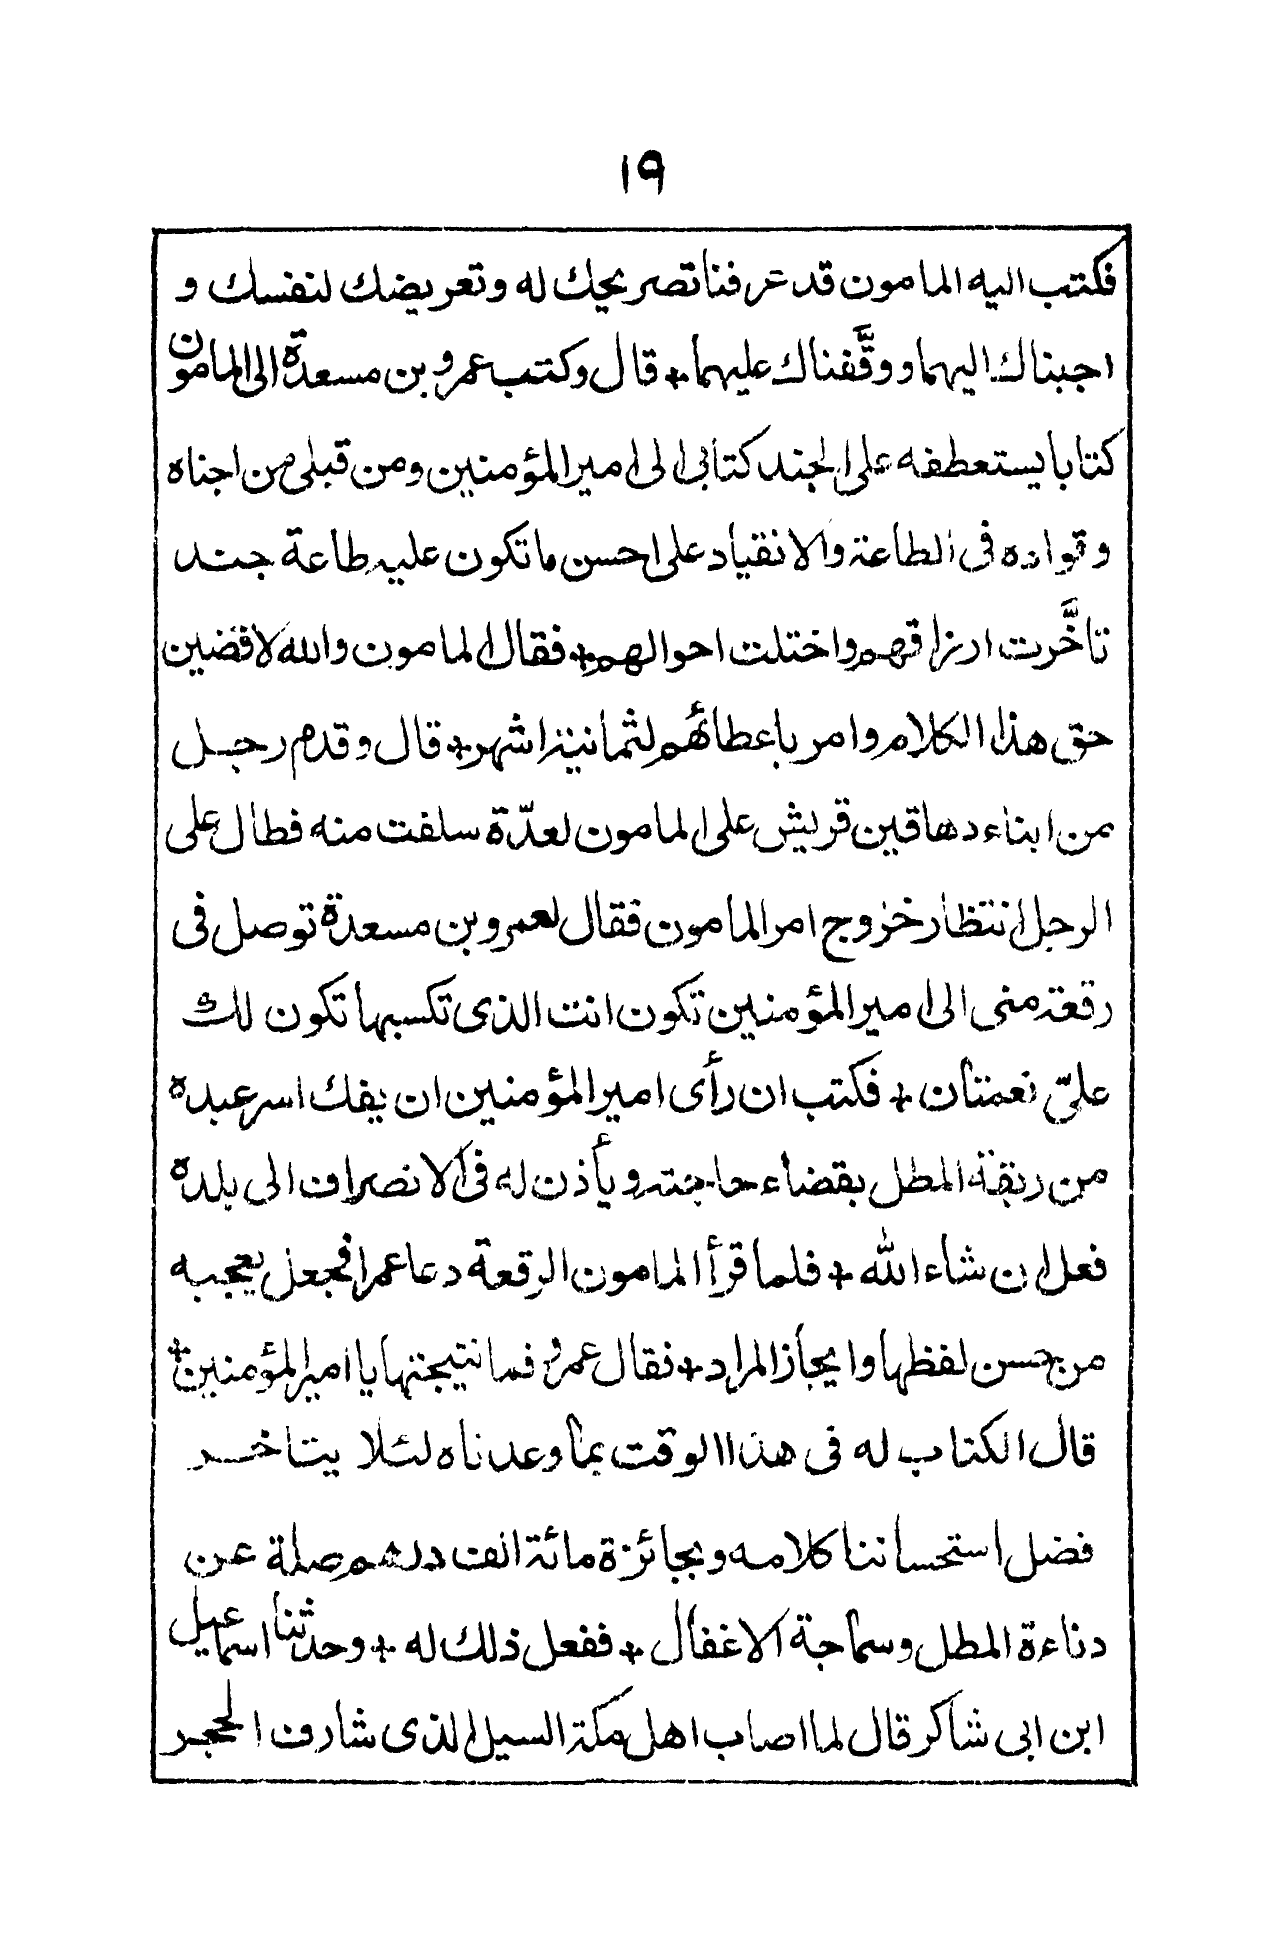 ١٩
فكتب اليه المامون قد عرفنا تصريحك له وتعريضك لنفسك و
اجبناك اليهما ووقَّفناك عليهما + قال وكتب عمرو بن مسعدة الى المامون
كتابا يستعطفه على الجند كتابى الى امير المؤمنين ومن قبلى من اجناه
وقواده فى الطاعة والانقياد على احسن ما تكون عليه طاعة جند
تاخَّرت ارزاقهم واختلت احوالهم + فقال المامون والله لاقضين
حق هذا الكلام وامر باعطائهم لثمانية اشهر + قال وقدم رجل
من ابناء دهاقين قريش على المامون لعدّة سلفت منه فطال على
الرجل انتظار خروج امر المامون فقال لعمرو بن مسعدة توصل فى
رقعة منى الى امير المؤمنين تكون انت الذى تكسبها تكون لك
علىّ نعمتان + فكتب ان رأى امير المؤمنين ان يفك اسر عبده
من ربقة المطل بقضاء حاجته ويأذن له فى الانصراف الى بلده
فعل ان شاء الله + فلما قرأ المامون الرقعة دعا عمرا فجعل يعجبه
من حسن لفظها وايجاز المراد + فقال عمرو فما نتيجتها يا امير المؤمنين +
قال الكتاب له فى هذا الوقت بما وعدناه لئلا يتاخر
فضل استحساننا كلامه وبجائزة مائة الف درهم صلة عن
دناءة المطل وسماجة الاغفال + ففعل ذلك له + وحدثنا اسماعيل
ابن ابى شاكر قال لما اصاب اهل مكة السيل الذى شارف الحجر